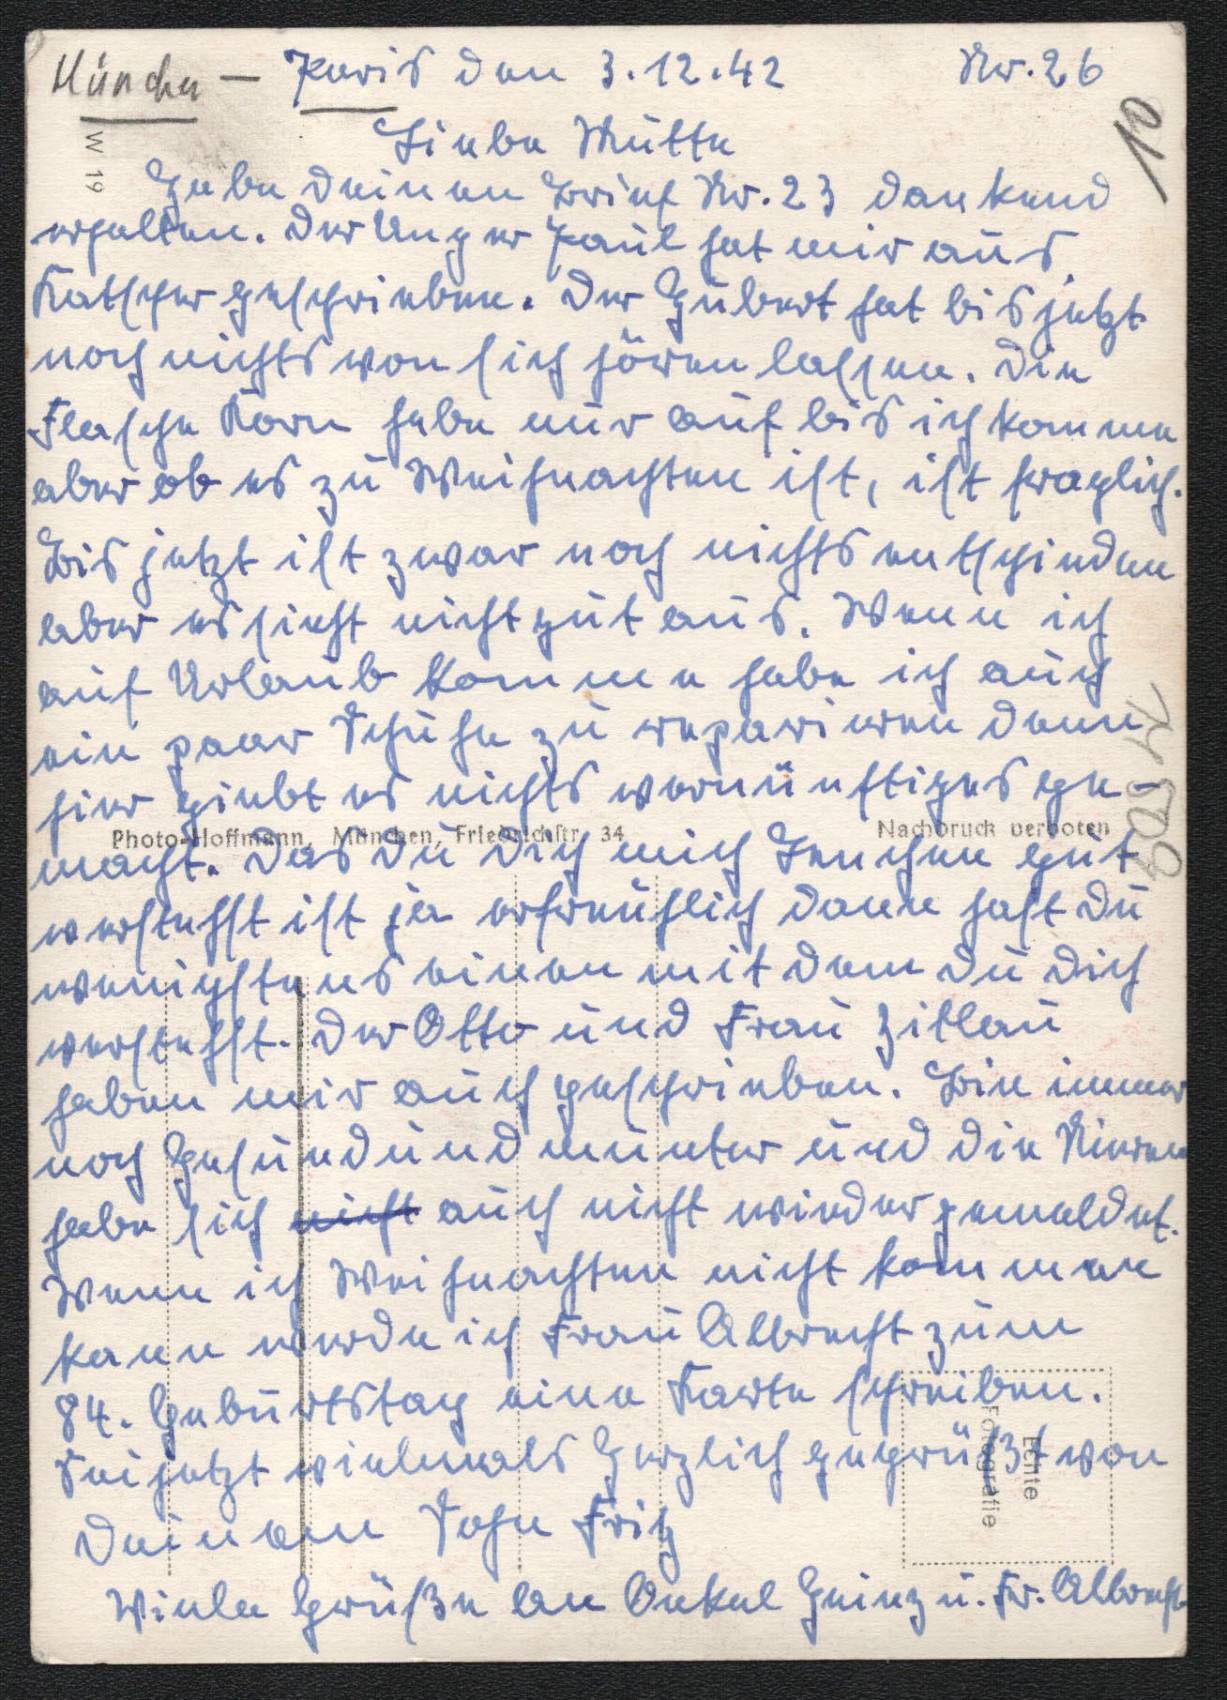 München – Paris den 3.12.42 Nr. 26
10
W 19
Liebe Mutte
Habe deinen Brief Nr. 23 dankend
erhalten. Der Unger Paul hat mir aus
Katscher geschrieben. Der Hubert hat bis jetzt
noch nichts von sich hören lassen. Die
Flasche Korn hebe nur auf bis ich komme
aber ob es zu Weihnachten ist, ist fraglich.
Bis jetzt ist zwar noch nichts entschieden
aber es sieht nicht gut aus. Wenn ich
auf Urlaub komme habe ich auch
ein paar Schuhe zu reparieren denn
hier giebt es nichts vernünftiges ge-
Photo-Hoffmann, München, Friedrichstr. 34 Nachdruck verboten
macht. Das Du Dich mich Lenchen gut
verstehst ist ja erfreuhlich dann hast Du
wenigstens einen mit dem Du Dich
verstehst. Der Otto und Frau Zitlau
haben mir auch geschrieben. Bin immer
noch Gesund und munter und die Nieren
habe sich nicht auch nicht wieder gemeldet.
Wenn ich Weihnachten nicht kommen
kann werde ich Frau Albrecht zum
84. Geburtstag eine Karte schreiben.
Sei jetzt vielmals Herzlich gegrüßt von
Deinem Sohn Fritz
Viele Grüße an Onkel Heinz u. Fr. Albrecht
Echte
Fotografie